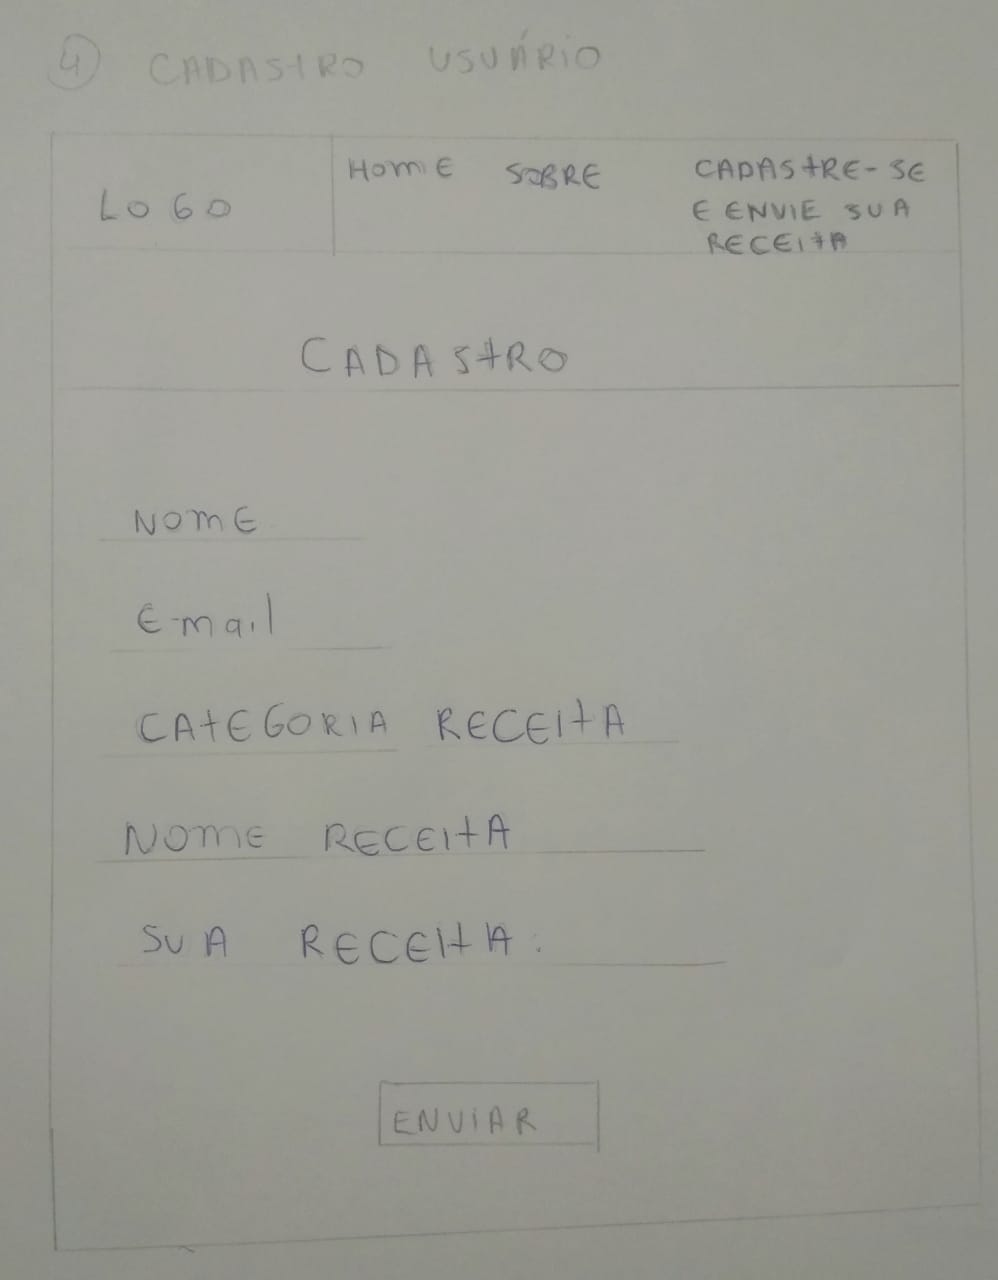 4 CADASTRO USUÁRIO
LOGO
HOME SOBRE CADASTRE-SE
E ENVIE SUA
RECEITA
CADASTRO
NOME
E-mail
CATEGORIA RECEITA
NOME RECEITA
SUA RECEITA:
ENVIAR